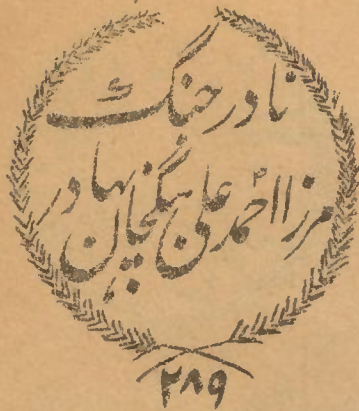 نادر جنگ
مرزا احمد علی بیگخان بہادر
۲۸۹